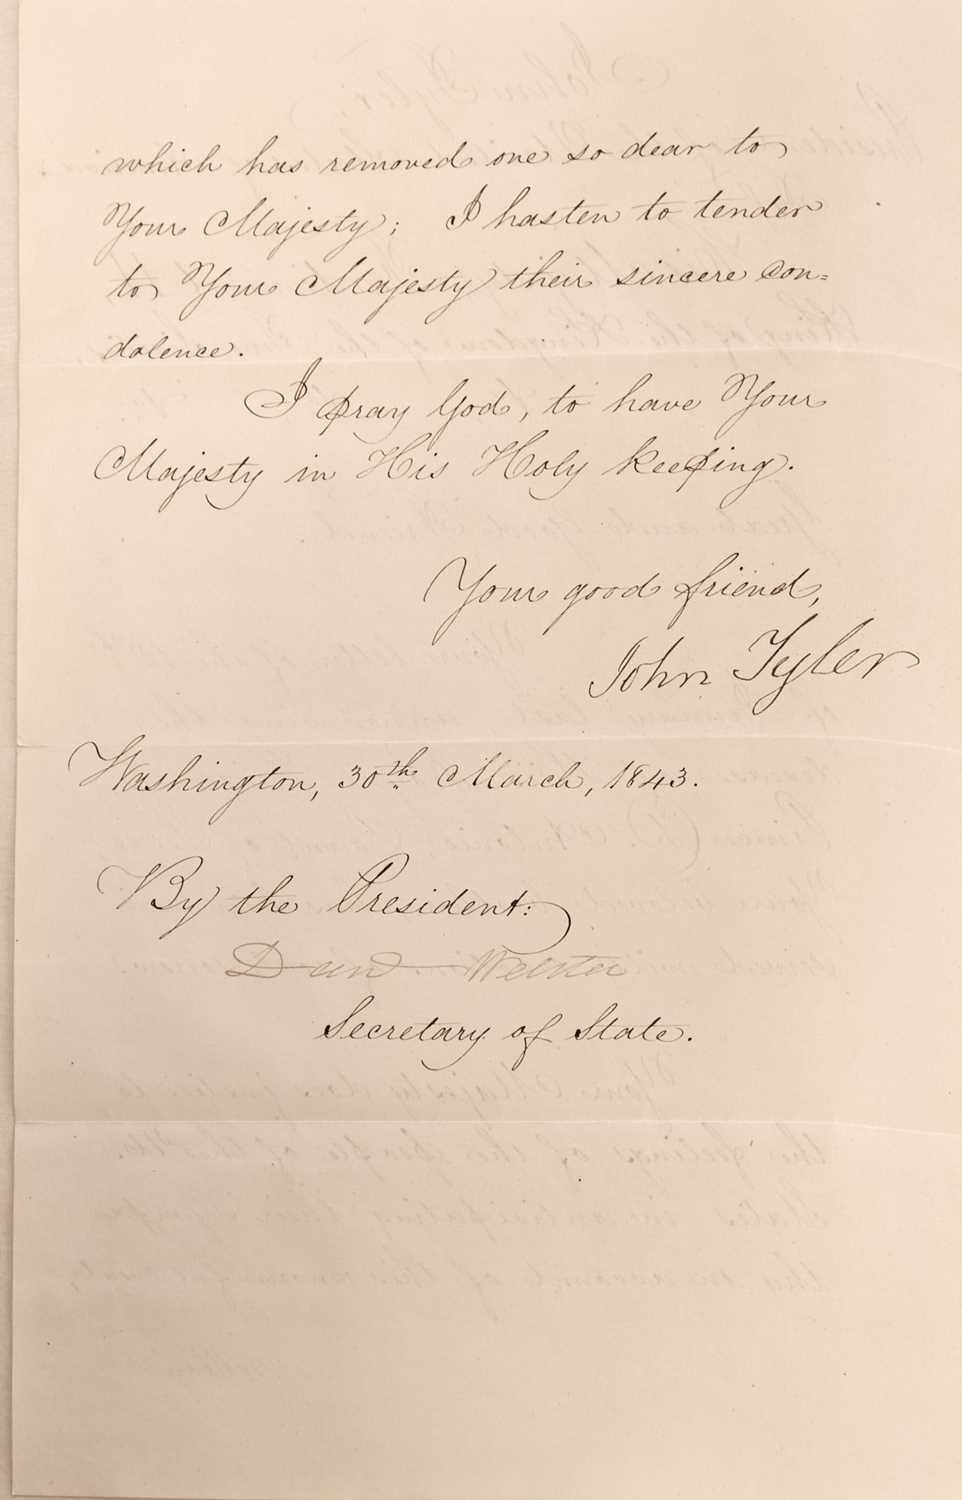 which has removed one so dear to
Your Majesty; I hasten to tender
to Your Majesty their sincere con=
dolence.
I pray God, to have Your
Majesty in His Holy keeping.
Your good friend,
John Tyler
Washington, 30th March, 1843.
By the President:
Danl Webster
Secretary of State.